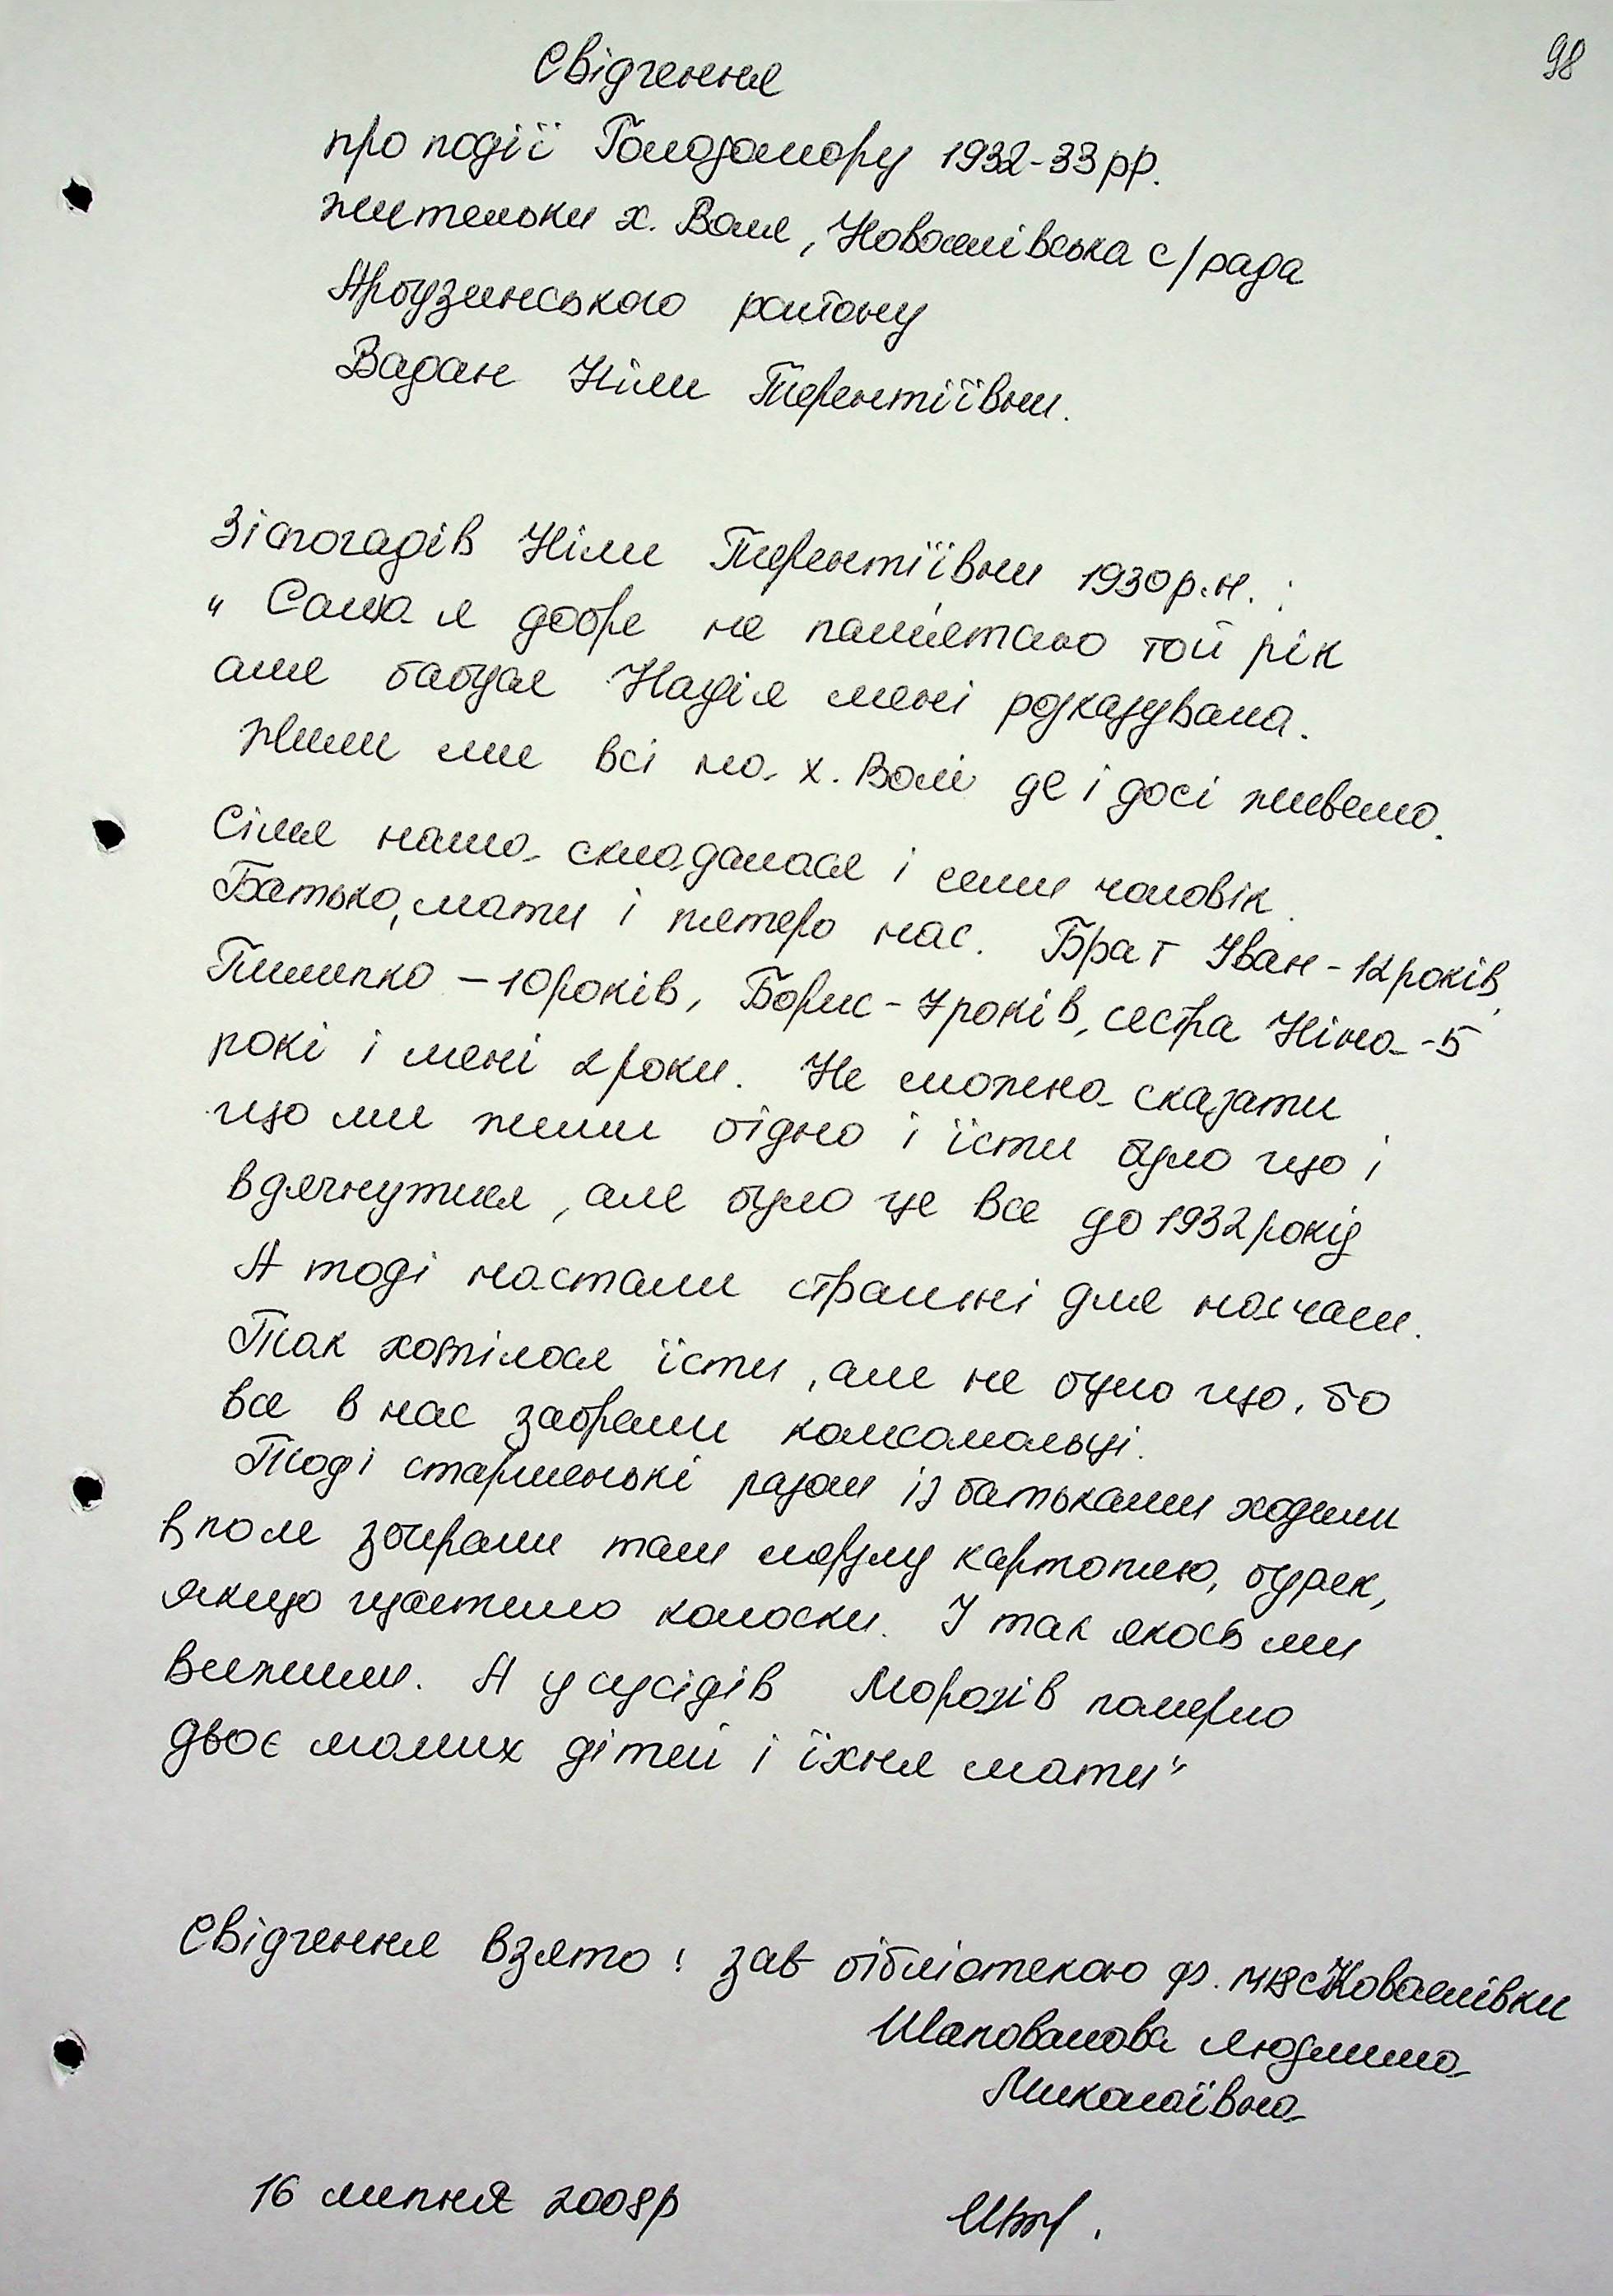 98
Свідчення
про події Голодомору 1932-33 рр.
жительки х. Воля, Новоселівська с/рада
Арбузинського району
Вадан Ніли Терентіївни.
Зі спогадів Ніли Терентіївни 1930 р.н. :
" Сама я добре не пам'ятаю той рік
але бабуся Надія мені розказувала.
Жили ми всі на х. Волі де і досі живемо.
Сімя наша складалася і семи чоловік.
Батько, мати і пятеро нас. Брат Іван - 12 років,
Пилипко - 10 років, Борис - 7 років, сестра Ніна - 5
рокі і мені 2 роки. Не можна сказати
що ми жили бідно і їсти було що і
вдягнутися, але було це все до 1932 року
А тоді настали страшні для нас часи.
Так хотілося їсти, але не було що, бо
все в нас забрали комсомольці.
Тоді старшенькі разом із батьками ходили
в поле збирали там мерзлу картоплю, буряк,
якщо щастило колоски. І так якось ми
вижили. А у сусідів Морозів померло
двоє малих дітей і їхня мати"
Свідчення взято: зав бібліотекою ф. Новоселівки
Шаповалова Людмила
Миколаївна
16 липня 2008р